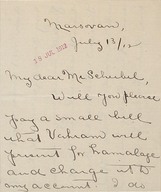 Marsovan,
July 13/12
29 JUL 1912
My dear Mr. Scheibel,
Will you please
pay a small bill
what Vahram will
present for hamalage
and charge it to
my account. I do